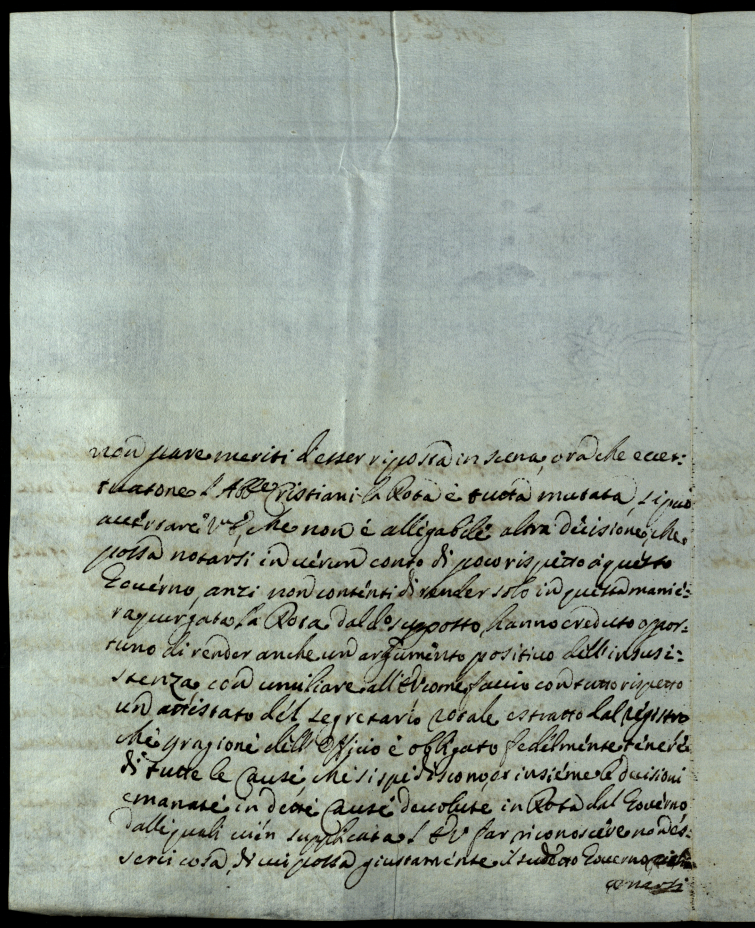 non pare meriti d'esser riposta in scena, ora che eccet:
tuatone l'Abbe Cristiani la Rota è tutta mutata, si può
accertare V E, che non è allegabile altra decisione, che
possa notarsi in verun conto di poco rispetto à questo
Governo, anzi non contenti di render solo in questa manie:
ra purgata la Rota dal do supposto, hanno creduto oppor:
tuno di render anche un argumento positivo dell'insusi:
stenza con umiliare all'EV come faccio con tutto rispetto
un attestato del segretario rotale estratto dal registro
che per ragione dell'Officio è obbligato fedelmente tenere
di tutte le cause, che si spediscono, et insieme le decisioni
emanate in dette cause devolute in Rota dal Governo
dalle quali vien supplicata l'EV far riconoscere non es:
servi cosa, di cui possa giustamente il sudetto Governo